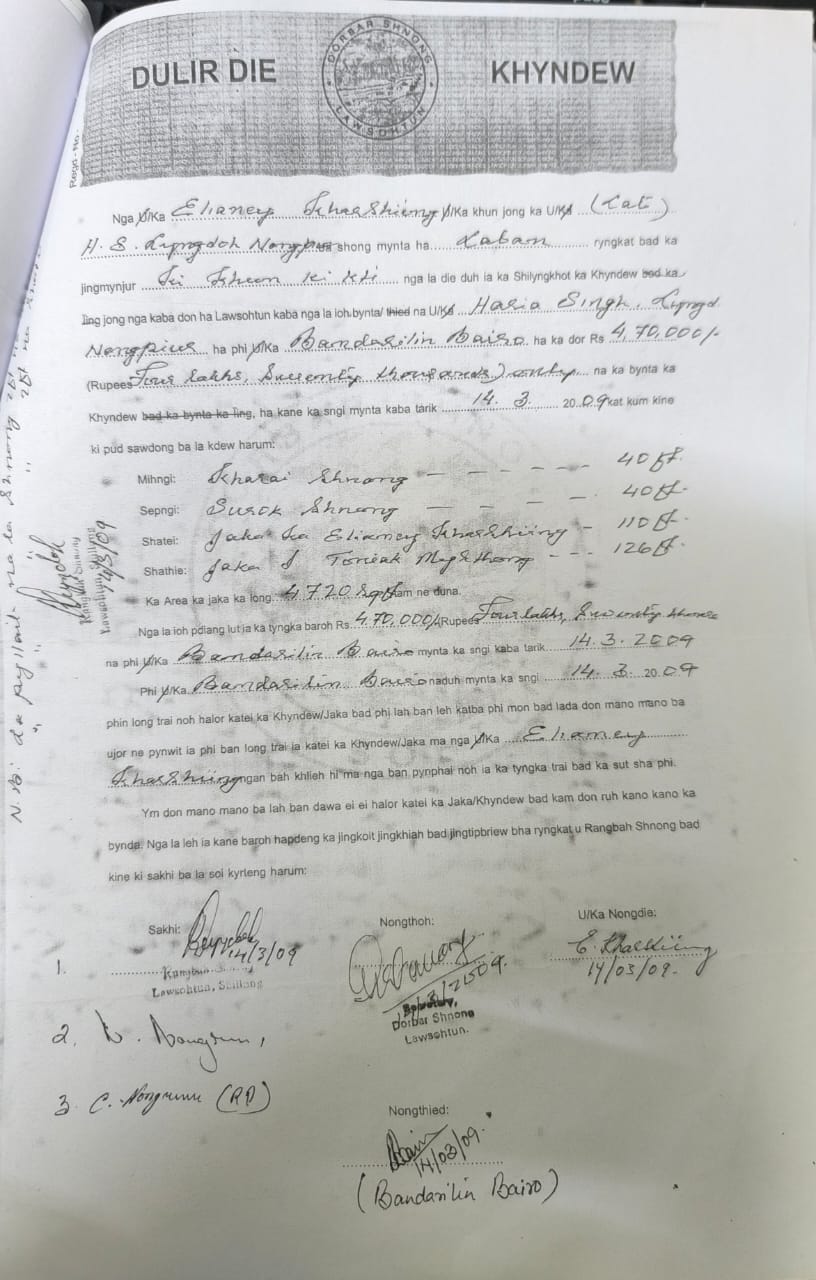 DULIR DIE KHYNDEW
DORBAR SHNONG LAWSOHTUN
Regd. No.
Nga U/Ka Elianey Kharshiing U/Ka khun jong ka U/Ka (Late)
H. S. Lyngdoh Nongpiur shong mynta ha Laban ryngkat bad ka
jingmynjur ki khun ki kti nga la die duh ia ka Shilyngkhot ka Khyndew bad ka
ling jong nga kaba don ha Lawsohtun kaba nga la ioh bynta/ thied na U/Ka Haria Singh, Lyngd
Nongpiur ha phi U/Ka Bandarilin Bairo ha ka dor Rs 4,70,000/-
(Rupees Four lakhs, Seventy thousands) only na ka bynta ka
Khyndew bad ka bynta ka ling, ha kane ka sngi mynta kaba tarik 14. 3. 2009 kat kum kine
ki pud sawdong ba la kdew harum:
Mihngi: Kharai Shnong - - - - - - 40 ft.
Sepngi: Surok Shnong - - - - - 40 ft.
Shatei: Jaka Ka Elianey Kharshiing - 110 ft.
Shathie: Jaka Toniak Mukthong - - - 126 ft
Ka Area ka jaka ka long 4720 Sqft tam ne duna.
Nga la ioh pdiang lut ia ka tyngka baroh Rs. 4,70,000/- Rupees Four lakhs, Seventy
na phi U/Ka Bandarilin Bairo mynta ka sngi kaba tarik 14.3.2009
Phi U/Ka Bandarilin Bairo naduh mynta ka sngi 14. 3. 2009
phin long trai noh halor katei ka Khyndew/Jaka bad phi lah ban leh katba phi mon bad lada don mano mano ba
ujor ne pynwit ia phi ban long trai ia katei ka Khyndew/Jaka ma nga U/Ka Elianey
Kharshiing ngan bah khlieh hi ma nga ban pynphai noh ia ka tyngka trai bad ka sut sha phi.
Ym don mano mano ba lah ban dawa ei ei halor katei ka Jaka/Khyndew bad kam don ruh kano kano ka
bynda. Nga la leh ia kane baroh hapdeng ka jingkoit jingkhiah bad jingtipbriew bha ryngkat u Rangbah Shnong bad
kine ki sakhi ba la soi kyrteng harum:
Sakhi:
Nongthoh:
U/Ka Nongdie:
1.
14/3/09
Rangbah Shnong
Lawsohtun, Shillong
14/3/2009.
Secretary,
Dorbar Shnong
Lawsohtun.
E. Kharshiing
14/03/09.
2.
3. C. Nongrum (RD)
Nongthied:
Bairo
14/03/09.
(Bandarilin Bairo)
N.B:
Rangbah Shnong
Lawsohtun, Shillong
14/3/09